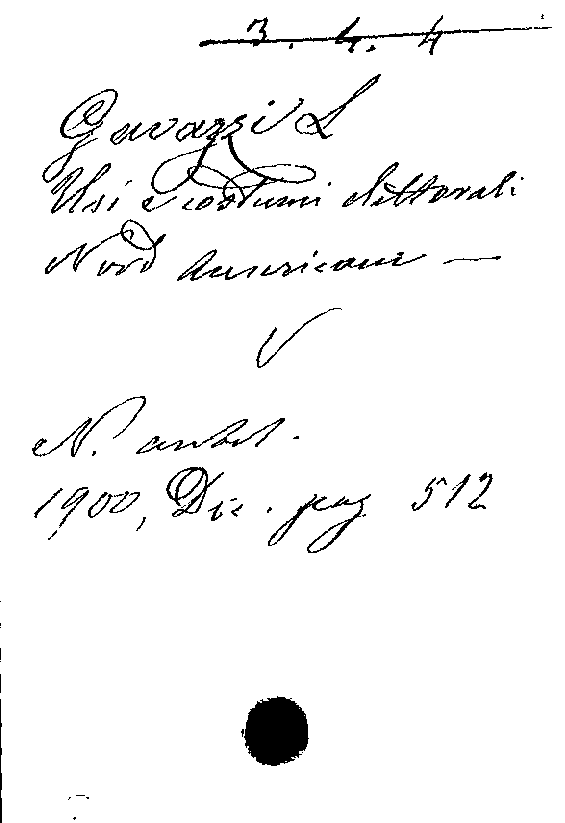 3. 4. 4
Gavazzi L
Usi e costumi elettorali
Nord Americani —
V
N. antol.
1900, Dic. pag 512